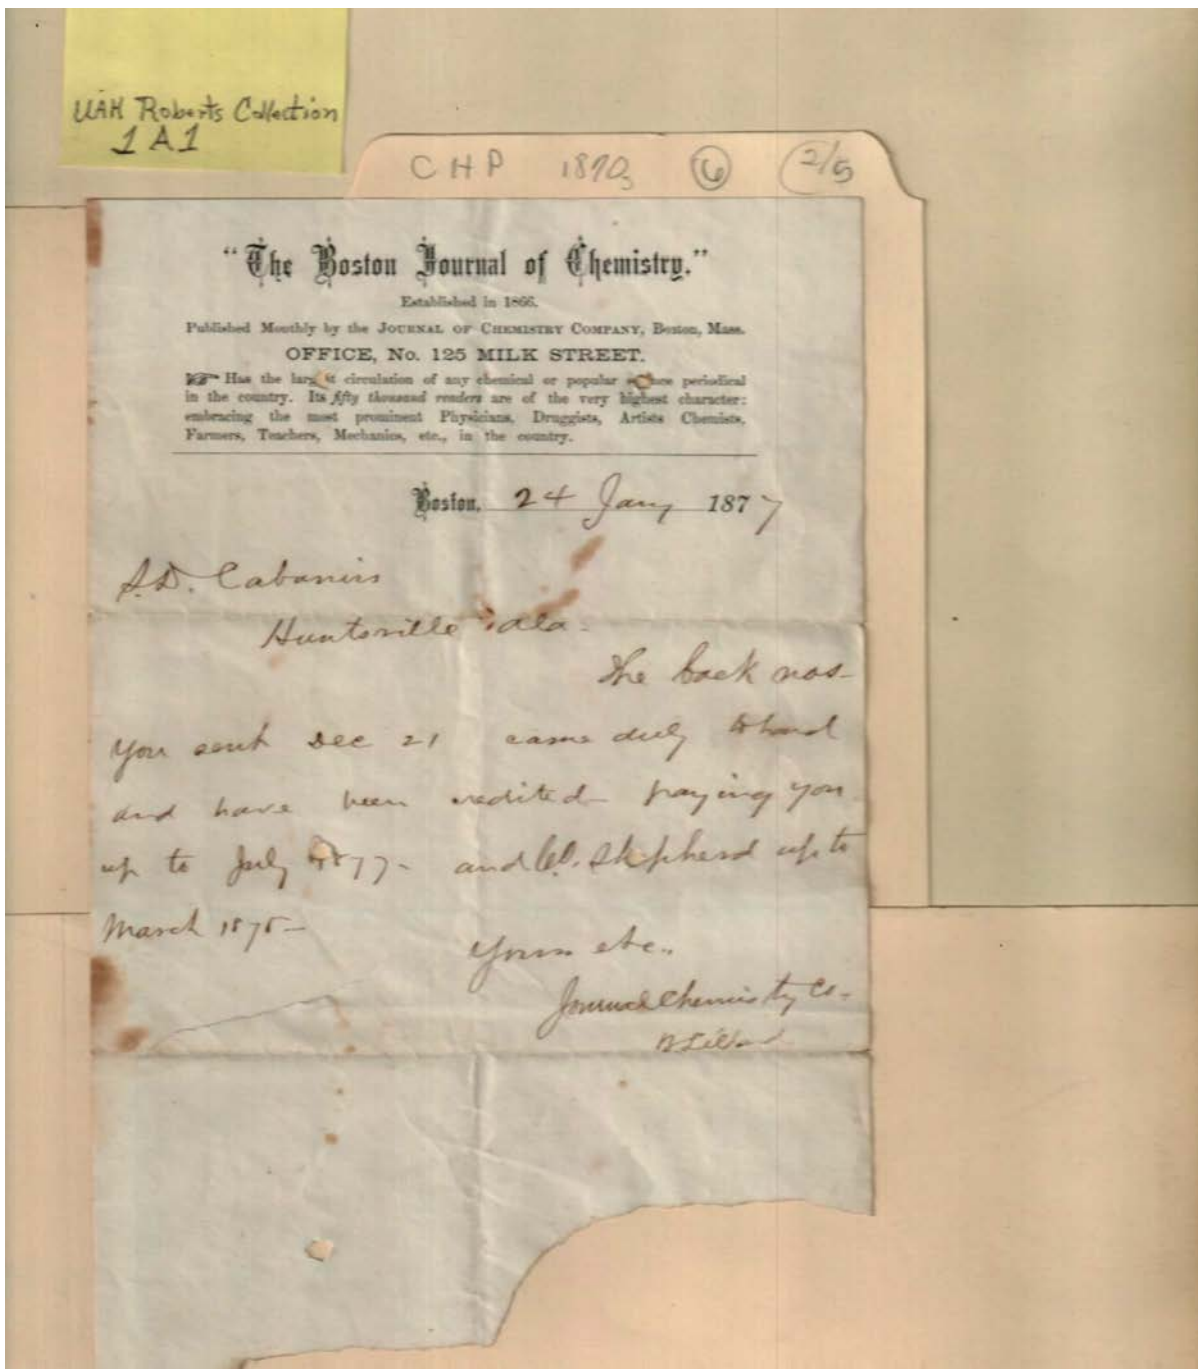 UAH Roberts Collection
1 A 1
CHP 1870s 6 2/5
"The Boston Journal of Chemistry."
Established in 1866.
Published Monthly by the JOURNAL OF CHEMISTRY COMPANY, Boston, Mass.
OFFICE, No. 125 MILK STREET.
Has the largest circulation of any chemical or popular science periodical
in the country. Its fifty thousand readers are of the very highest character;
embracing the most prominent Physicians, Druggists, Artists Chemists,
Farmers, Teachers, Mechanics, etc., in the country.
Boston, 24 Jany 1877
S.D. Cabaniss
Huntsville Ala-
The back nos-
you sent Dec 21 came duly to hand
and have been credited- paying you
up to July 1877- and Shepherd up to
March 1878-
Yours etc.,
Journal Chemistry Co-